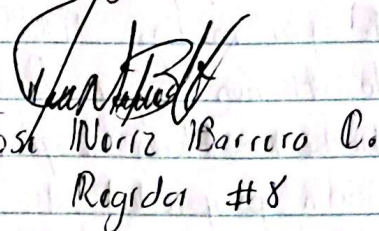 ose Noriz Barrera C.
Regidor #8